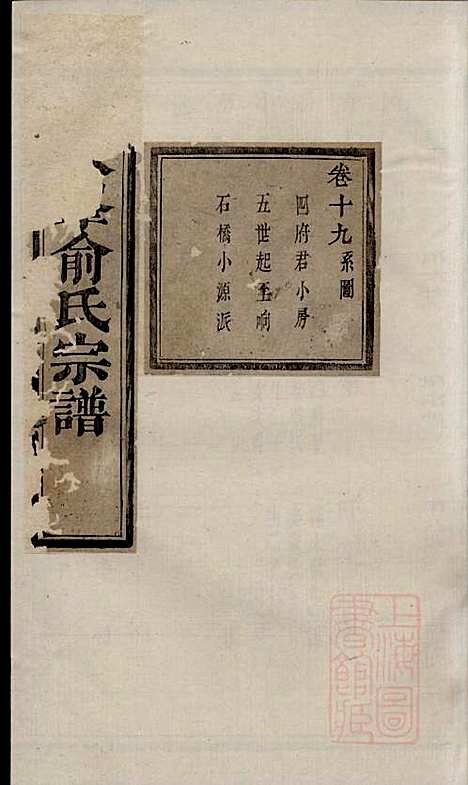 卷十九系圖
四府君小房
五世起至响
石橋小源派
俞氏宗譜
上海圖
書館臧